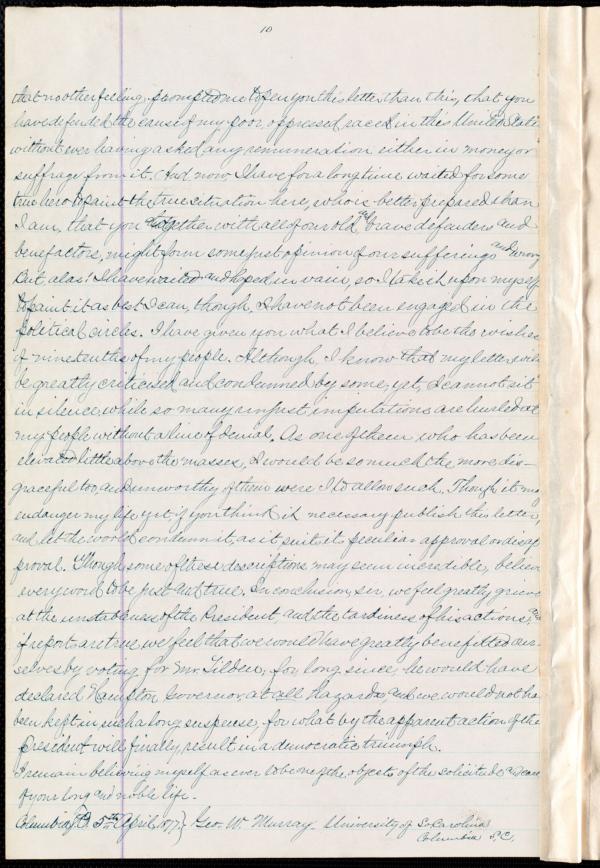 10
that no other feeling, prompted me to pen you this letter than this, that you
have defended the cause of my poor, oppressed race in this United State
without ever having asked any remuneration either in money or
suffrage from it. And now, I have for a long time waited for some
true hero to paint the true situation here, who is better prepared than
I am, that you together with all of our old brave defenders and
benefactors, might form some just opinion of our sufferings and wrong
But, alas! I have waited and hoped in vain, so I take it upon myself
to paint it as best I can, though, I have not been engaged in the
political circles. I have given you what I believe to be the wishes
of nine tenths of my people. Although, I know that my letter, will
be greatly criticised and condemned by some, yet, I cannot sit
in silence while so many unjust imputations are hurled at
my people without a line of denial. As one of them who has been
elevated little above the masses, I would be so much the more dis-
graceful too, and unworthy of them were I to allow such. Though it may
endanger my life yet if you think it necessary publish this letter,
and let the world condemn it, as it suit its peculiar approval or disap
proval. Though some of these descriptions may seem incredible, believe
every word to be just and true. In conclusion, sir, we feel greatly grieve
at the unstableness of the President, and the tardiness of his actions, and
if reports are true we feel that we would have greatly benefitted our-
selves by voting for Mr. Tilden, for long since, he would have
declared Hampton Governor, at all hazards and we would not ha
been kept in such a long suspense, for what by the apparent action of the
President will finally result in a democratic triumph.
I remain believing myself as ever to be one of the objects of the solicitude and care
of your long and noble life.
Columbia, 5th April, 1877} Geo. W. Murray. University of So. Carolina
Columbia S.C.